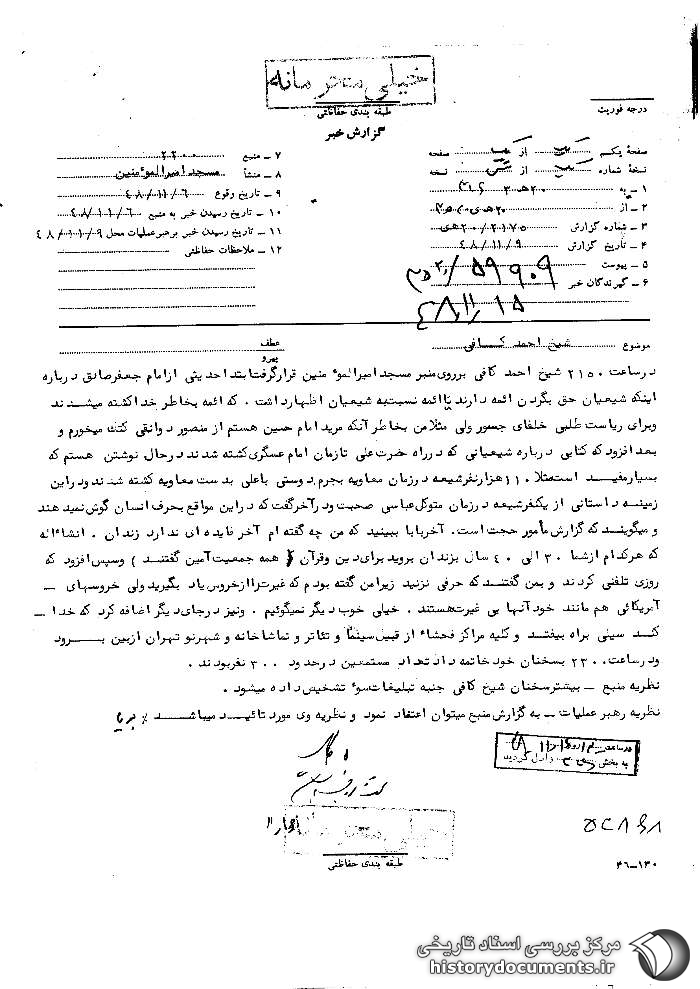 خیلی محرمانه
طبقه بندی حفاظتی
درجه فوریت
گزارش خبر
صفحه یکم از صفحه
نسخه شماره از نسخه
۱ ـ به ۲۰۰هـ ۳ ۳۱۶
۲ ـ از
۳ ـ شماره گزارش ۲۰/۲۱۷۵هـ
۴ ـ تاریخ گزارش ۴۸/۱۱/۹
۵ ـ پیوست
۶ ـ گیرندگان خبر
۵۹۹۰۹
۴۸/۱۱/۱۵
۷ ـ منبع ۲۲۰۰
۸ ـ منشأ مسجد امیرالموءمنین
۹ ـ تاریخ وقوع ۴۸/۱۱/۶
۱۰ ـ تاریخ رسیدن خبر به منبع ۴۸/۱۱/۶
۱۱ ـ تاریخ رسیدن خبر برهبر عملیات محل ۴۸/۱۱/۹
۱۲ ـ ملاحظات حفاظتی
موضوع شیخ احمد کافی
عطف
پیرو
در ساعت ۲۱۵۰ شیخ احمد کافی برروی منبر مسجد امیرالموء منین قرار گرفت ابتدا حدیثی از امام جعفر صادق درباره
اینکه شیعیان حق بگردن ائمه دارند یا ائمه نسبت به شیعیان اظهار داشت . که ائمه بخاطر خدا کشته میشدند
وبرای ریاست طلبی خلفای جسور ولی مثلا من بخاطر آنکه مرید امام حسین هستم از منصور دوانقی کتک میخورم و
بعد افزود که کتابی درباره شیعیانی که در راه حضرت علی تا زمان امام عسگری کشته شدند در حال نوشتن هستم که
بسیار مفید است مثلا ۱۱۰ هزار نفر شیعه در زمان معاویه بجرم دوستی با علی بدست معاویه کشته شدند ودر این
زمینه داستانی از یکنفر شیعه در زمان متوکل عباسی صحبت ودر آخر گفت که در این مواقع بحرف انسان گوش نمید هند
و میگویند که گزارش مأمور حجت است. آخر بابا ببینید که من چه گفته ام آخر فایده ای ندارد زندان . انشاءاله
که هر کدام از شما ۳۰ الی ۴۰ سال بزندان بروید برای دین وقرآن ( همه جمعیت آمین گفتند ) وسپس افزود که
روزی تلفنی کردند و بمن گفتند که حرفی نزنید زیرا من گفته بودم که غیرت را از خروس یاد بگیرید ولی خروسهای ـ
آمریکائی هم مانند خود آنها بی غیرت هستند . خیلی خوب دیگر نمیگوئیم . ونیز در جای دیگر اضافه کرد که خدا ـ
کند سیلی براه بیفتد و کلیه مراکز فحشاء از قبیل سینما و تئاتر و تماشاخانه و شهرنو تهران از بین بـــرود
ودر ساعت ۲۳۰۰ بسخنان خود خاتمه داد تعداد مستمعین در حدود ۳۰۰ نفر بودند .
نظریه منبع ـ بیشتر سخنان شیخ کافی جنبه تبلیغات سوء تشخیص داده میشود .
نظریه رهبر عملیات ـ به گزارش منبع میتوان اعتقاد نمود و نظریه وی مورد تائید میباشد ٪
به بخش واصل گردید
خیلی محرمانه
طبقه بندی حفاظتی
۴۶-۱۳۰
مرکز بررسی اسناد تاریخی
historydocuments.ir